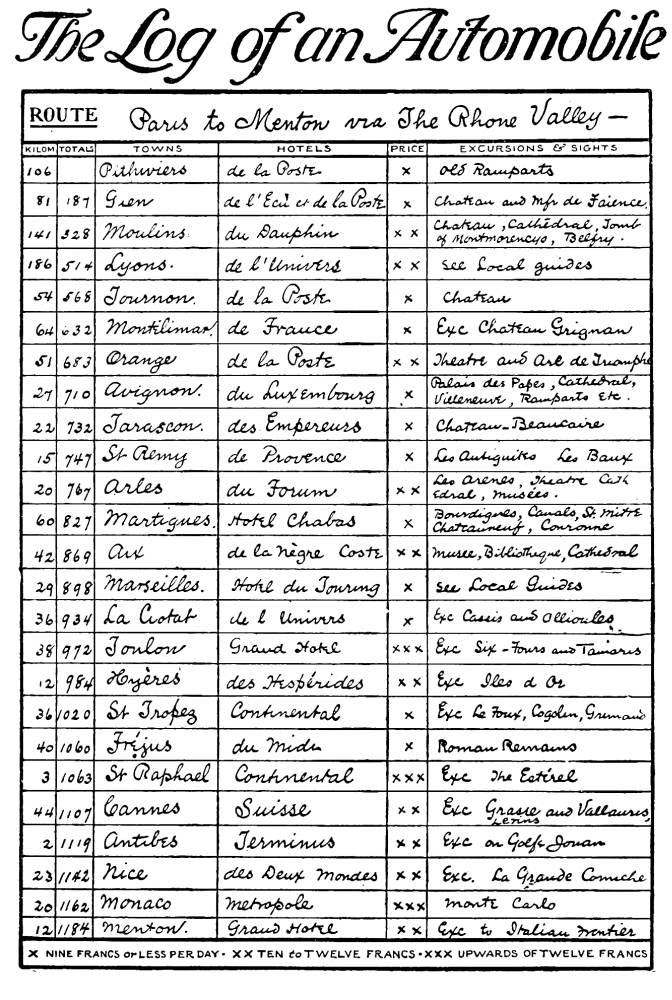 The Log of an Automobile
ROUTE Paris to Menton via The Rhone Valley—
KILOM TOTALS TOWNS HOTELS PRICE EXCURSIONS & SIGHTS
106 Pithiviers de la Poste x old Ramparts
81 187 Gien de l'Ecù et de la Poste x Chateau and Mfr de Faience.
141 328 Moulins du Dauphin x x Chateau, Cathédral, Tomb
of Montmorencys, Belfry.
186 514 Lyons. de l'Univers x x see Local guides
54 568 Tournon. de la Poste x Chateau
64 632 Montélimar. de France x Exc Chateau Grignan
51 683 Orange de la Poste x x Theatre and Arc de Triomphe
27 710 Avignon. du Luxembourg x Palais des Papes, Cathedral,
Villeneuve, Ramparts Etc.
22 732 Tarascon. des Empereurs x Chateau-Beaucaire
15 747 St Remy de Provence x Les Antiquites Les Baux
20 767 Arles du Forum x x Les Arenes, Theatre Cath
edral, Musées.
60 827 Martigues. Hotel Chabas x Bourdigues, Canals, St. Mitre
Chateauneuf, Couronne
42 869 Aix de la nègre Coste x x Musee, Bibliotheque, Cathedral
29 898 Marseilles. Hotel du Touring x see Local Guides
36 934 La Ciotat de l Univers x Exc Cassis and Ollioules.
38 972 Toulon Grand Hotel x x x Exc Six-Fours and Tamaris
12 984 Hyères des Hespérides x x Exc Iles d Or
36 1020 St Tropez Continental x Exc Le Foux, Cogolin, Grimaud
40 1060 Fréjus du Midi x Roman Remains
3 1063 St Raphael Continental x x x Exc The Estérel
44 1107 Cannes Suisse x x Exc Grasse and Vallauris,
Lerins
2 1119 Antibes Terminus x x Exc on Golfe Jouan
23 1142 Nice des Deux Mondes x x Exc. La Grande Corniche
20 1162 Monaco Metropole x x x Monte Carlo
12 1184 Menton. Grand Hotel x x Exc to Italian Frontier
X NINE FRANCS or LESS PER DAY • XX TEN to TWELVE FRANCS • XXX UPWARDS OF TWELVE FRANCS